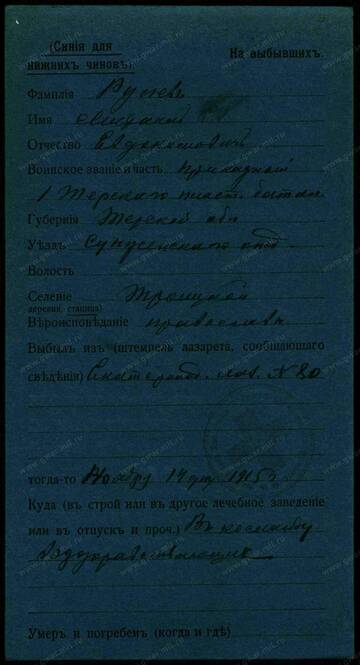 (Синія для нижнихъ чиновъ).
На выбывшихъ
Фамилія
Имя
Отчество Евдокимовичъ
Воинское званіе и часть Приказный
1 Терскаго пласт. батал
Губернія Терской обл
Уѣздъ Сунженскаго отд
Волость
Селеніе Троицкой
деревня, станица)
Вѣроисповѣданіе православн
Выбылъ изъ (штемпель лазарета, сообщающаго
свѣдѣнія) Екатеринод. лаз. N 80
тогда-то Ноябрь 14 дня 1915
Куда (въ строй или въ другое лечебное заведеніе
или въ отпускъ и проч.) Въ команду
выздоравливающихъ
Умеръ и погребенъ (когда и гдѣ)